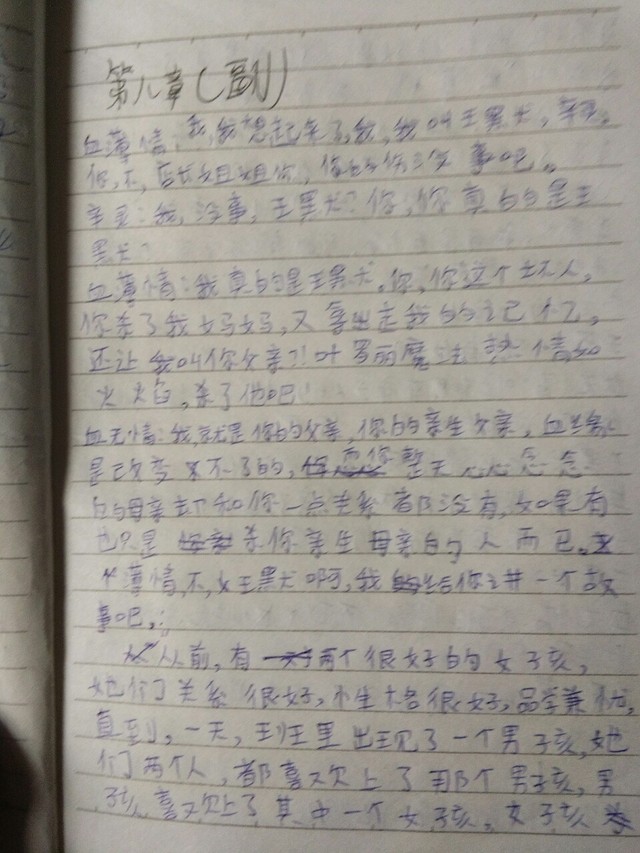 第八章(副)
血薄情:我,我想起来了,我,我叫王黑犬,辛灵,
你,不,店长姐姐你,你好你没事吧。
辛灵:我,没事,王黑犬?你,你真的是王
黑犬?
血薄情:我真的是王黑犬。你,你这个坏人,
你杀了我妈妈,又夺走我的记忆,
还让我叫你父亲?!叶罗丽魔法 热情如
火焰,杀了他吧!
血无情:我就是你的父亲,你的亲生父亲,血缘
是改变不了的,你整天心心念念
的母亲却和你一点关系都没有,如果有
也只是杀你亲生母亲的人而已。
薄情,不,女王黑犬啊,我给你讲一个故
事吧:
从前,有两个很好的女孩,
她们关系很好,性格很好,品学兼优,
直到,一天,班里出现了一个男孩,她
们两个人,都喜欢上了那个男孩,男
孩喜欢上了其中一个女孩。女孩